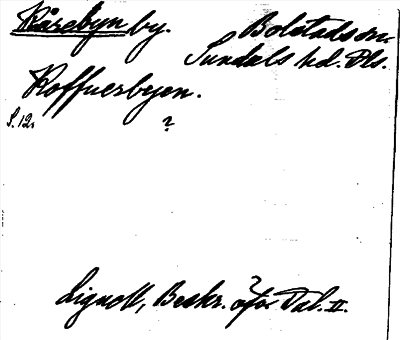 Kårebyn by. Bolstads sn.
Sundals hd. Dls.
Roffuerbyen.
S. 12. ?
Lignell, Beskr. öfver Dal. II.